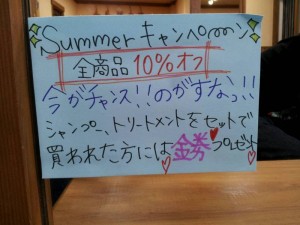 Summerキャンペーン
全商品10%オフ
今がチャンス!!のがすなっ!!
シャンプー、トリートメントをセットで
買われた方には金券プレゼント